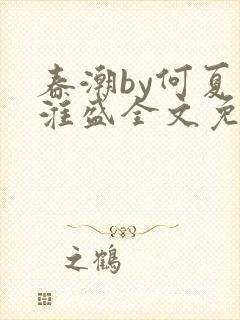 春潮by何夏
淮盛全文免
之鹤